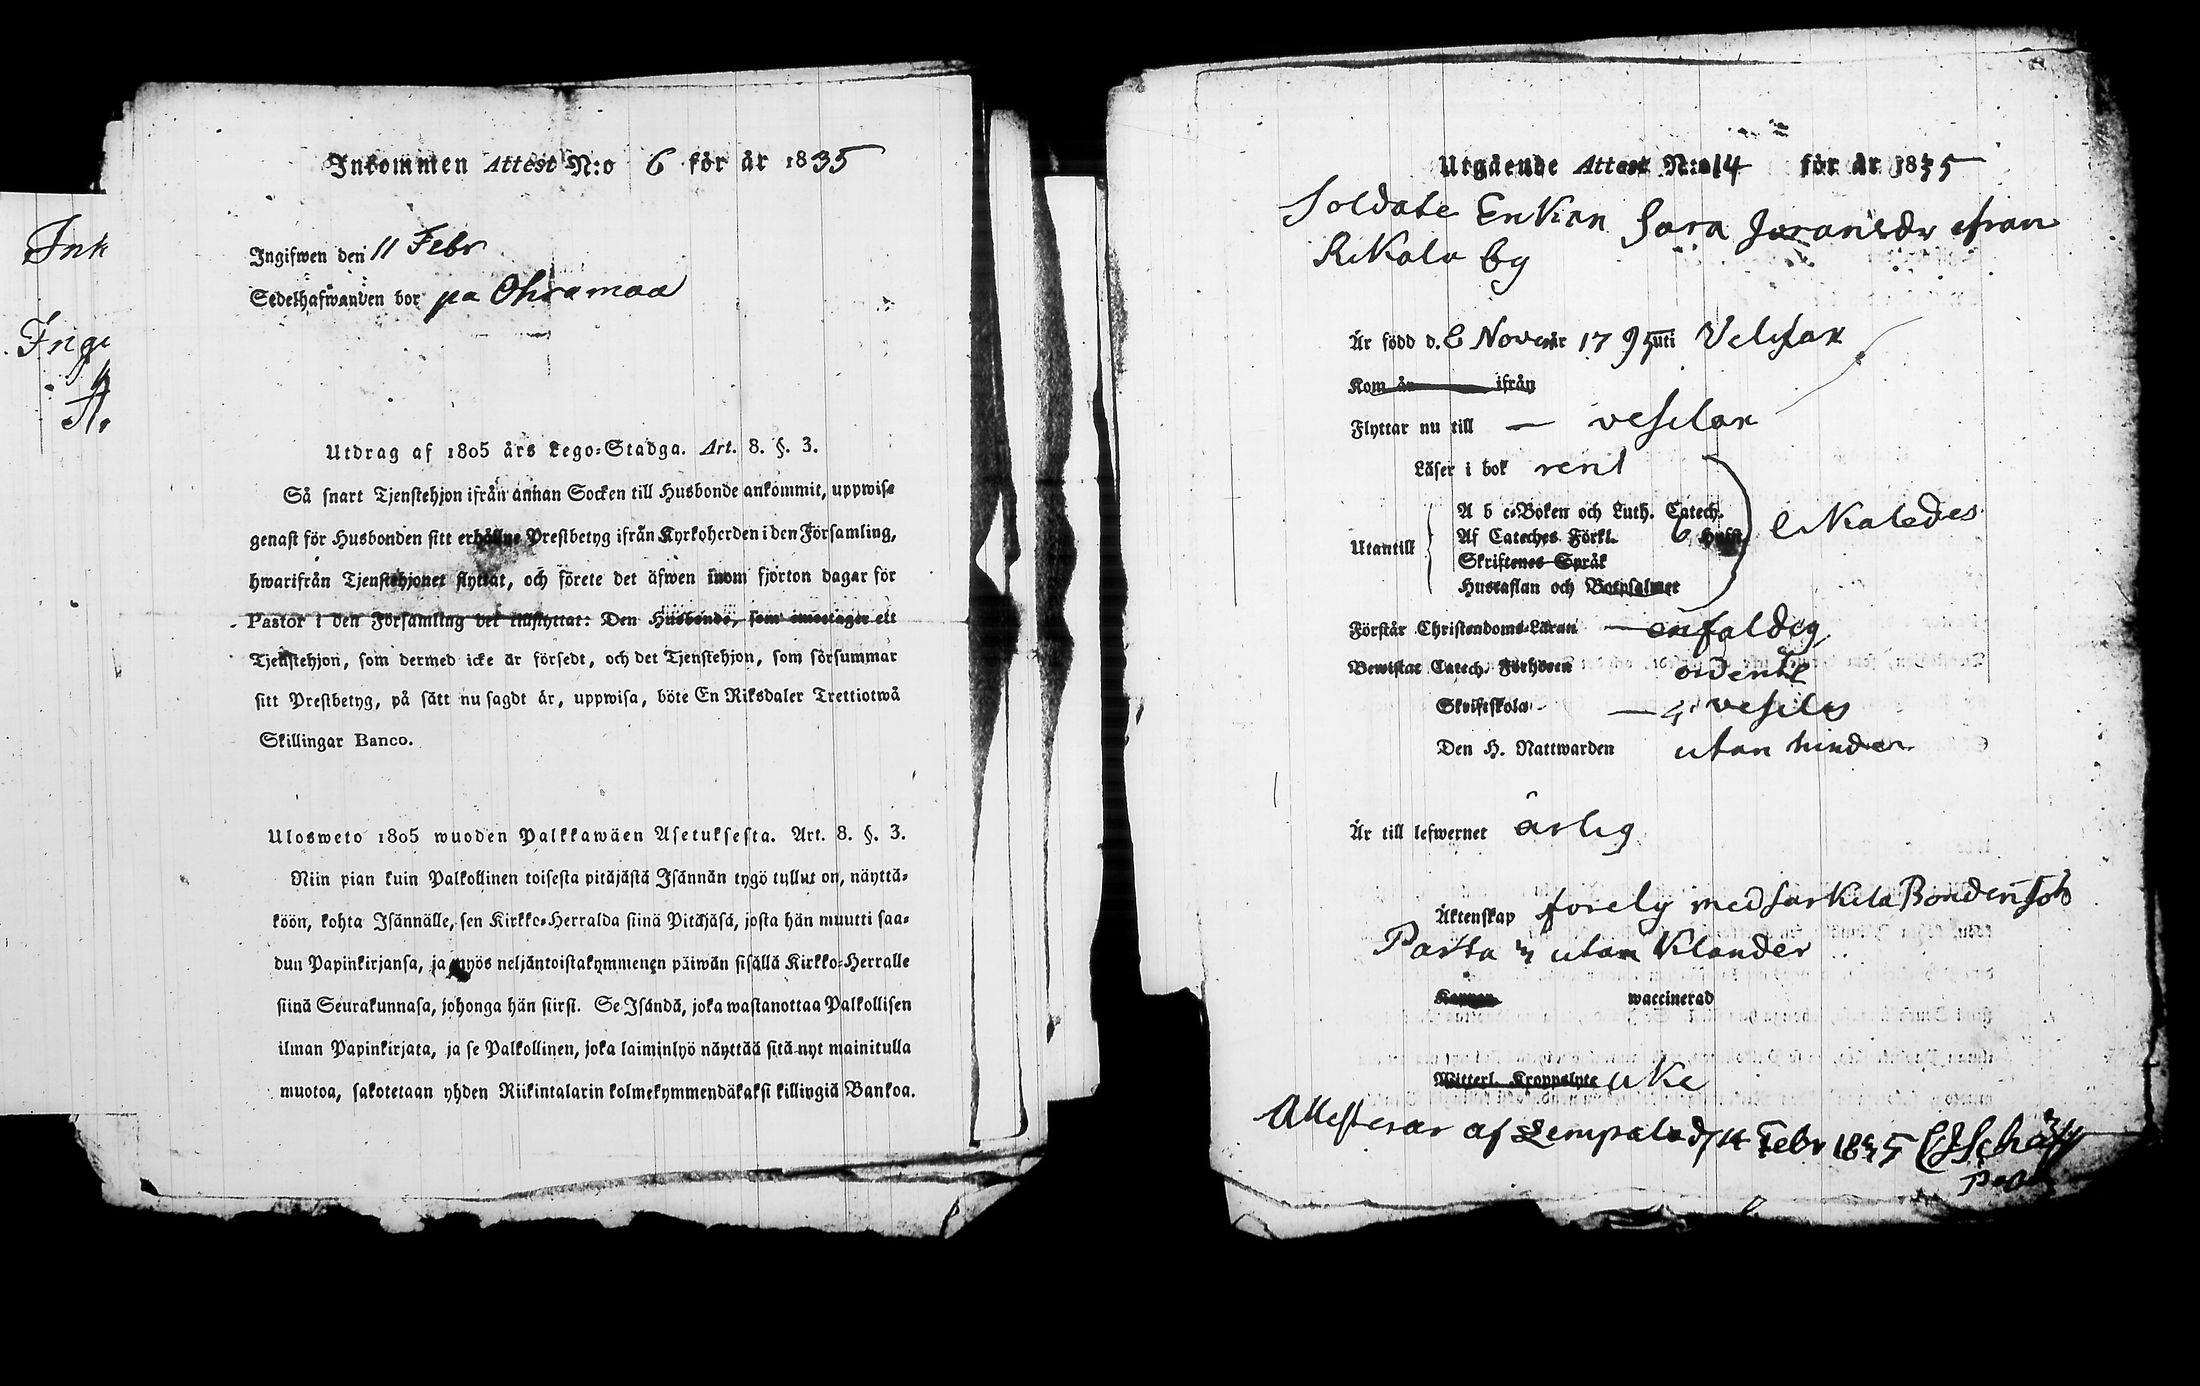 Ink
Inge
A.
Inkommen Attest N:o 6 för år 1835
Ingifwen den 11 Febr
Sedelhafwanden bor pa Ohramaa
Utdrag af 1805 års Lego-Stadga. Art. 8. §. 3.
Så snart Tjenstehjon ifrån annan Socken till Husbonde ankommit, uppwise
genast för Husbonden sitt erhållne Prestbetyg ifrån Kyrkoherden i den Församling,
hwarifrån Tjenstehjonet flyttat, och förete det äfwen inom fjorton dagar för
Pastor i den Församling det tillflyttat: Den Husbonde, som emottager ett
Tjenstehjon, som dermed icke är försedt, och det Tjenstehjon, som försummar
sitt Prestbetyg, på sätt nu sagdt är, uppwisa, böte En Riksdaler Trettiotwå
Skillingar Banco.
Ulosweto 1805 wuoden Palkkawäen Asetuksesta. Art. 8. §. 3.
Niin pian kuin Palkollinen toisesta pitäjästä Isännän tygö tullut on, näyttä-
köön, kohta Isännälle, sen Kirkko-Herralda siinä Pitäjäsä, josta hän muutti saa-
dun Papinkirjansa, ja myös neljäntoistakymmenen päiwän sisällä Kirkko-Herralle
siinä Seurakunnasa, johonga hän siirsi. Se Isändä, joka wastanottaa Palkollisen
ilman Papinkirjata, ja se Palkollinen, joka laiminlyö näyttää sitä nyt mainitulla
muotoa, sakotetaan yhden Riikintalarin kolmekymmendäkaksi killingiä Bankoa.
Utgående Attest N:o 14 för år 1835
Soldate Enkan Sara Joransdr ifran
Rikala by
Är född d. 8 Nove år 1795 uti Vesilax
Kom år ifrån
Flyttar nu till — vesilax
Läser i bok rent
Utantill
A b c-Boken och Luth. Catech.
Af Cateches Förkl. 6 Hufst.
Skriftenes Språk
Hustaflan och Botpsalmer
likaledes
Förstår Christendoms-Läran — enfaldig
Bewistat Catech. Förhören ordentl
Skriftskola — vesil
Den H. Nattwarden utan hinder
Är till lefwernet ärlig
Äktenskap med Sarkila Bonden
utan Klander
Koppor waccinerad
Witterl. Kroppslyte
Attesterar af Lempala d 14 Febr 1835